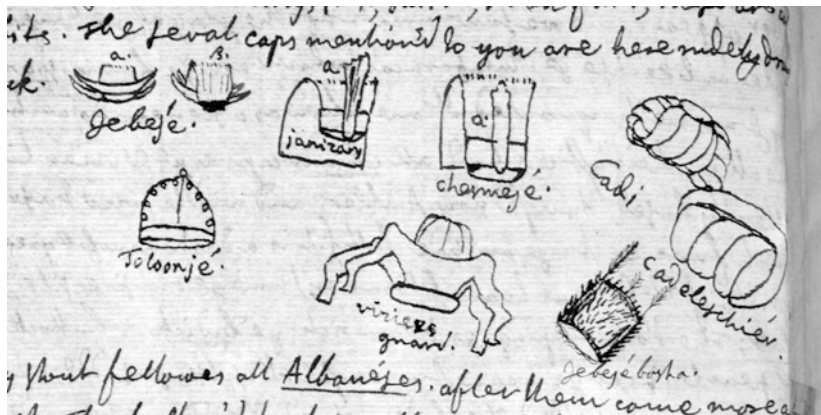 its. The seval caps mention'd to you are here rudely don
ck.
a. B.
Jebejé.
a.
janizary
a.
chermejé.
Cadi
Toloonjé.
vizier's
guard.
cadeleschiér.
Jebejé basha.
stout fellowes all Albanéses. after them come more